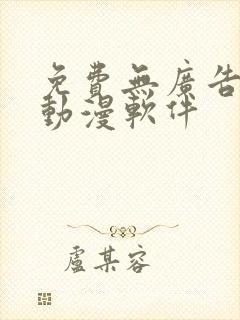 免費無廣告
動漫軟件
盧某容